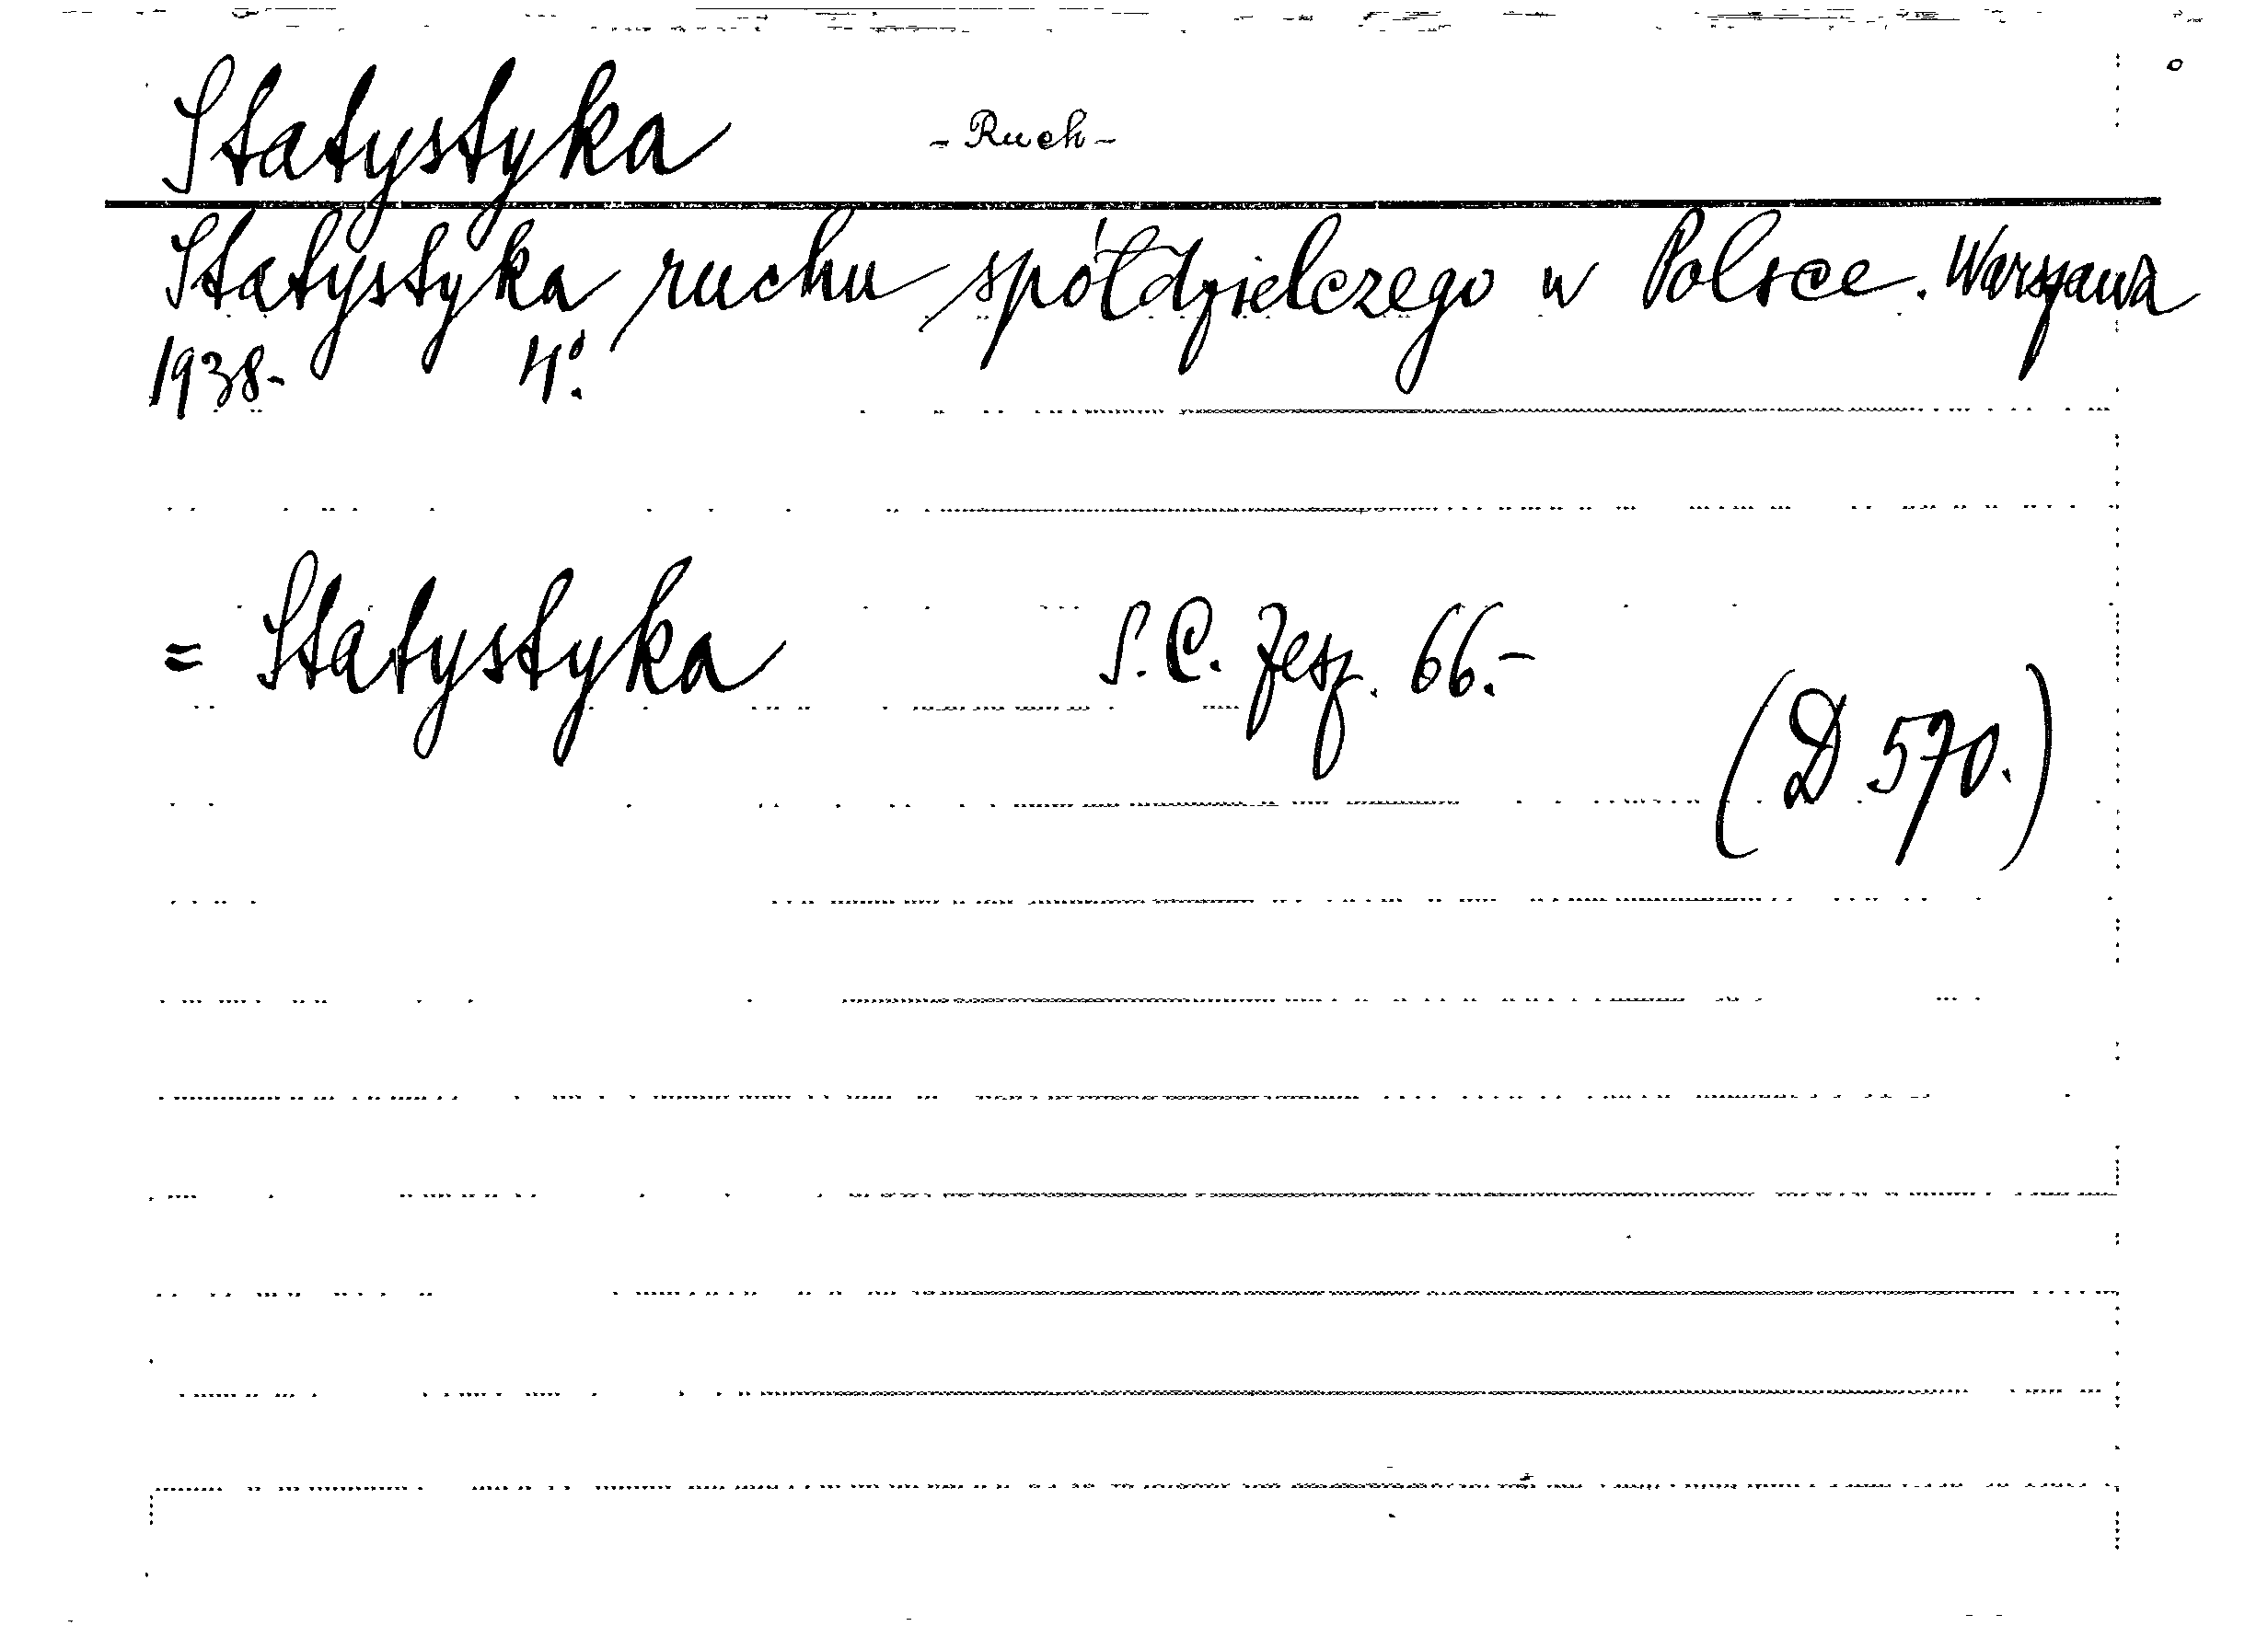 Statystyka - Ruch -
Statystyka ruchu spółdzielczego w Polsce. Warszawa
1938.- 4°.
= Statystyka S.C. Zesz. 66.-
(D 570.)